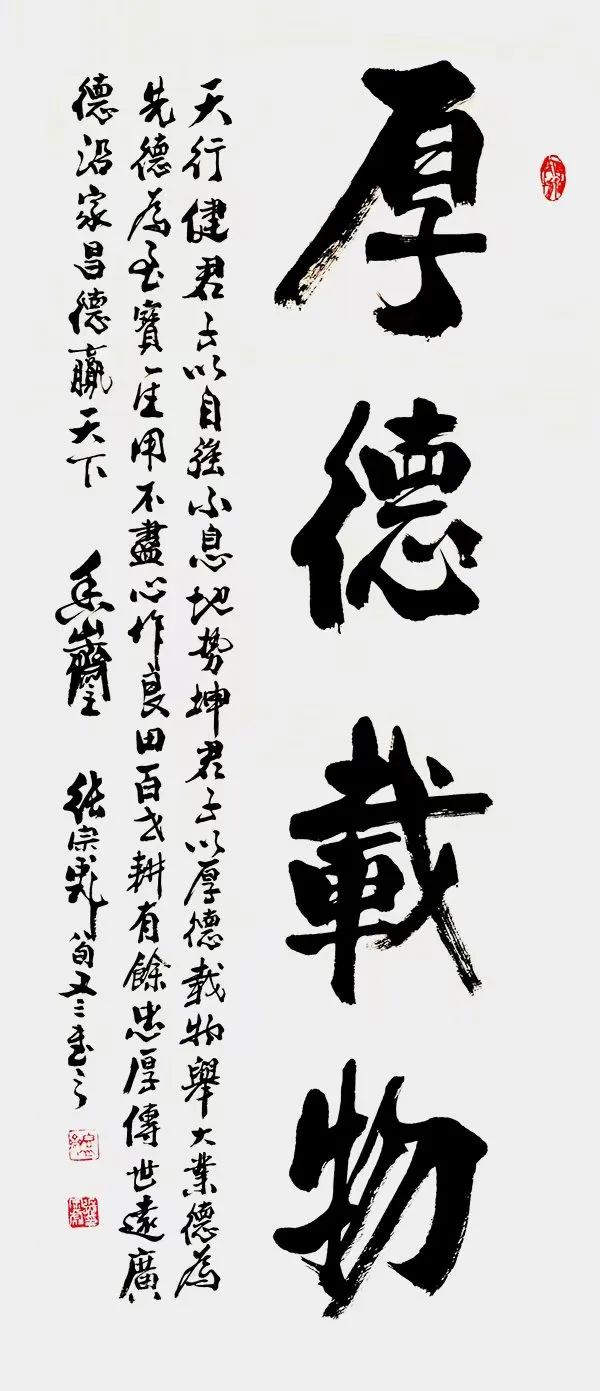 厚德載物
天行健君子以自強不息地势坤君子以厚德載物舉大業德為
先德為至寶一生用不盡心作良田百世耕有餘忠厚傳世遠廣
德治家昌德贏天下
張宗彪